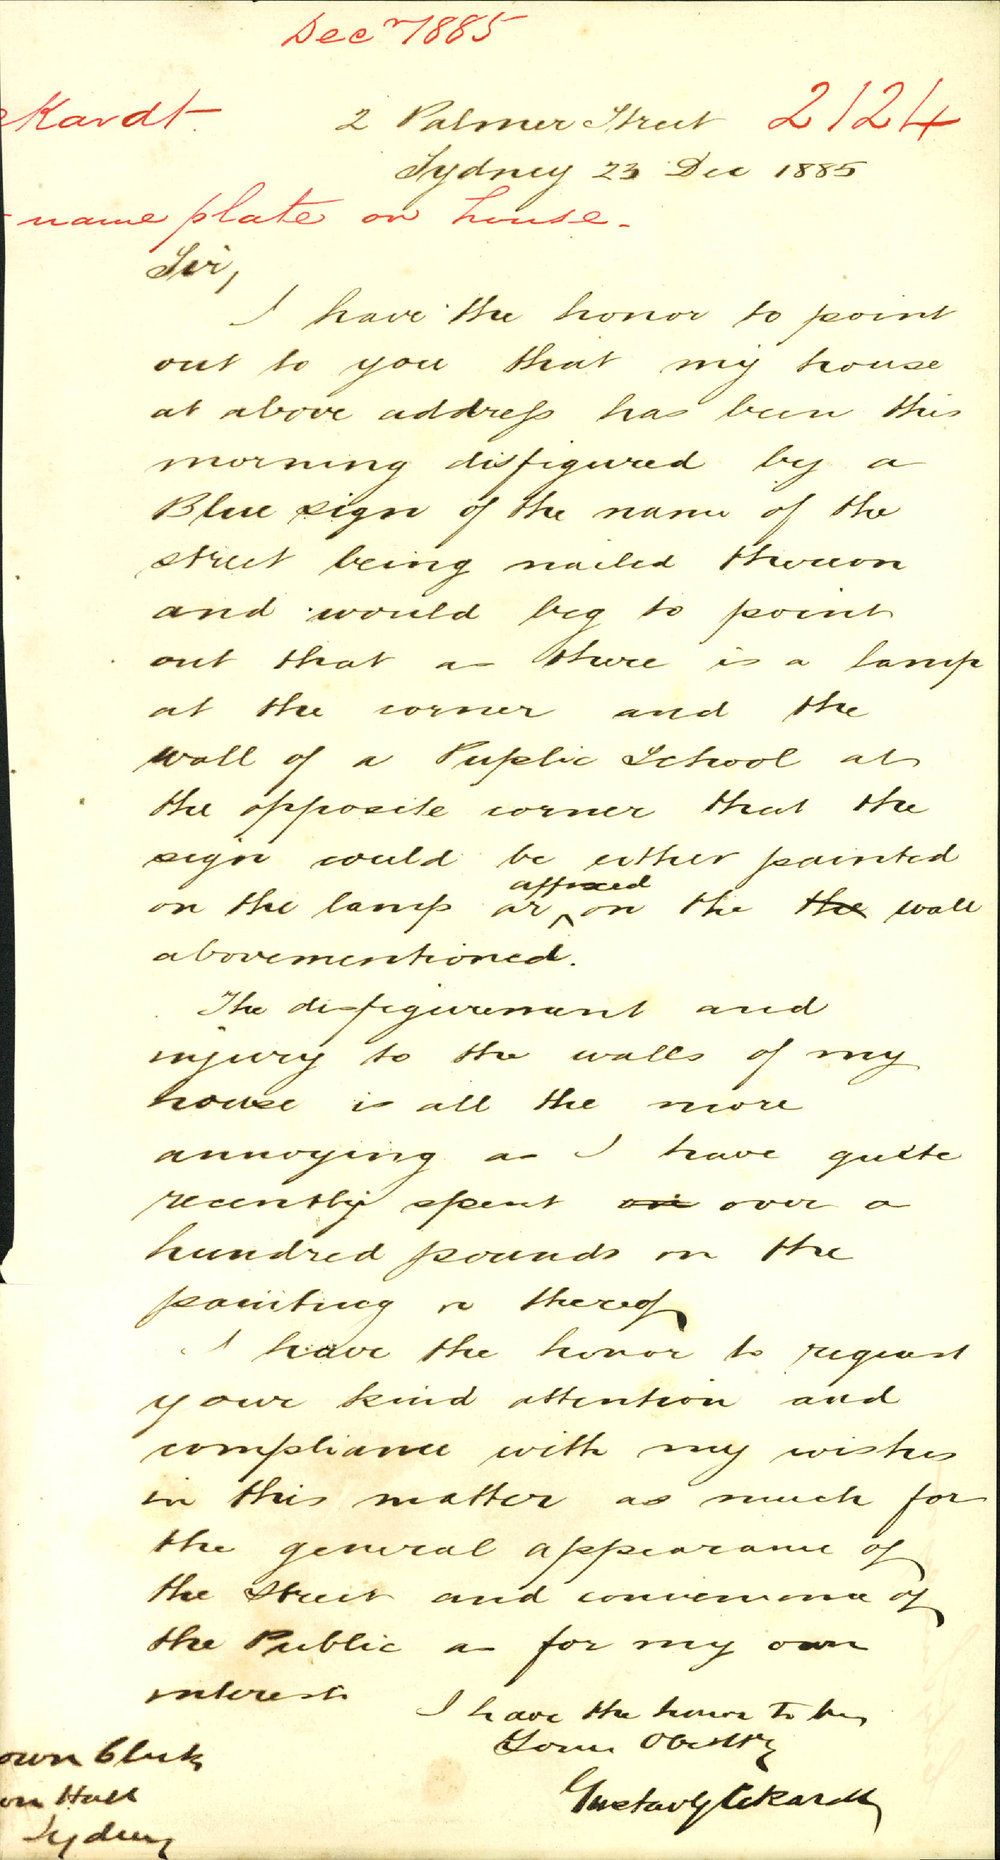 Decr 1885
ckardt. 2 Palmer Street 2124
Sydney 23 Dec 1885
- name plate on house.
Sir,
I have the honor to point
out to you that my house
at above address has been this
morning disfigured by a
Blue sign of the name of the
street being nailed thereon
and would beg to point
out that as there is a lamp
at the corner and the
wall of a Public School at
the opposite corner that the
sign could be either painted
affixed
on the lamp or on the the wall
abovementioned.
The disfigurement and
injury to the walls of my
house is all the more
annoying as I have quite
recently spent over a
hundred pounds on the
painting thereof
I have the honor to request
your kind attention and
compliance with my wishes
in this matter as much for
the general appearance of
the Street and convenience of
the Public as for my own
interest
I have the honor to be,
Your Obedt
Gustav Eckardt
own Clerk
own Hall
Sydney